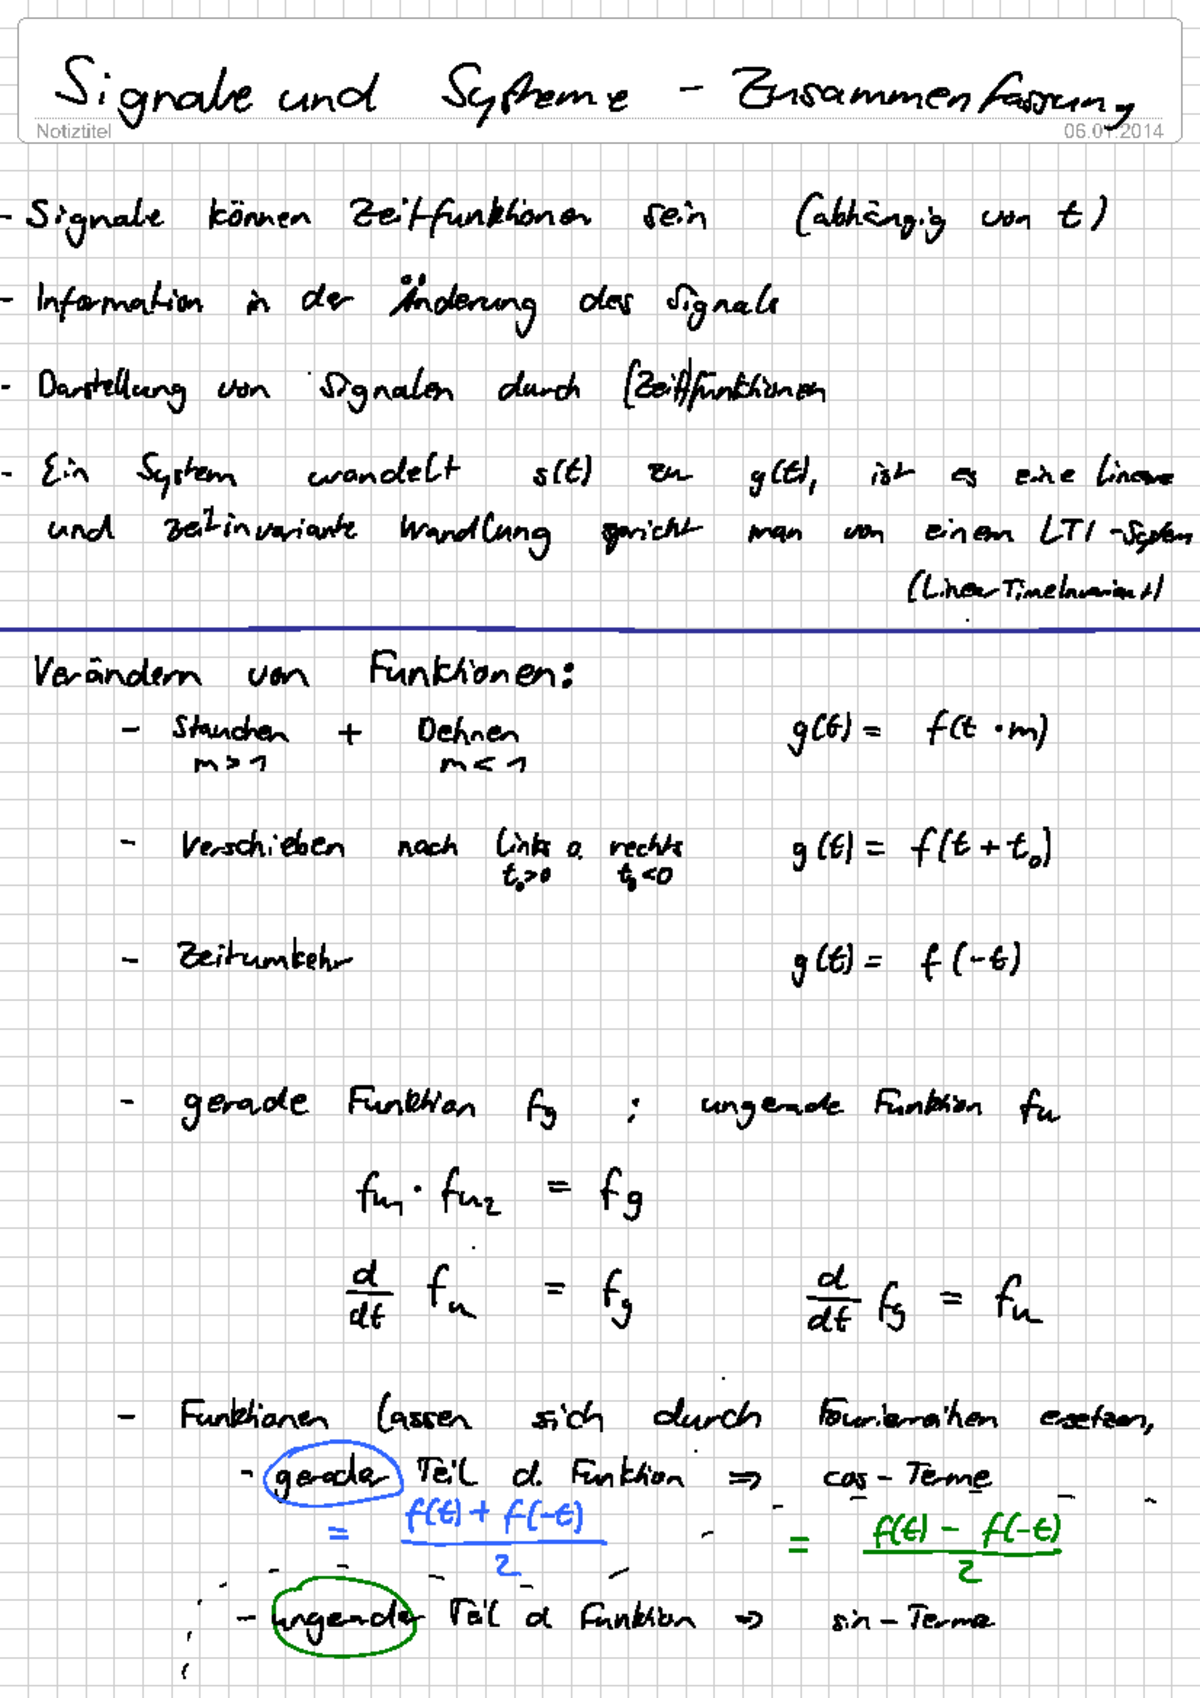 Signale und Systeme - Zusammenfassung
Notiztitel 06.01.2014
- Signale können Zeitfunktionen sein (abhängig von t)
- Information in der Änderung des Signals
- Darstellung von Signalen durch (Zeit)funktionen
- Ein System wandelt s(t) zu g(t), ist es eine lineare
und zeitinvariante Wandlung spricht man von einem LTI-System
(LinearTimeInvariant)
Verändern von Funktionen:
- Stauchen + Dehnen g(t) = f(t · m)
m > 1 m < 1
- Verschieben nach links o. rechts g(t) = f(t + t₀)
t₀>0 t₀<0
- Zeitumkehr g(t) = f(-t)
- gerade Funktion fg ; ungerade Funktion fu
fu₁ · fu₂ = fg
d/dt fu = fg d/dt fg = fu
- Funktionen lassen sich durch Fourierreihen ersetzen,
- gerader Teil d. Funktion ⇒ cos-Terme
= (f(t) + f(-t))/2 = (f(t) - f(-t))/2
- ungerader Teil d Funktion ⇒ sin-Terme